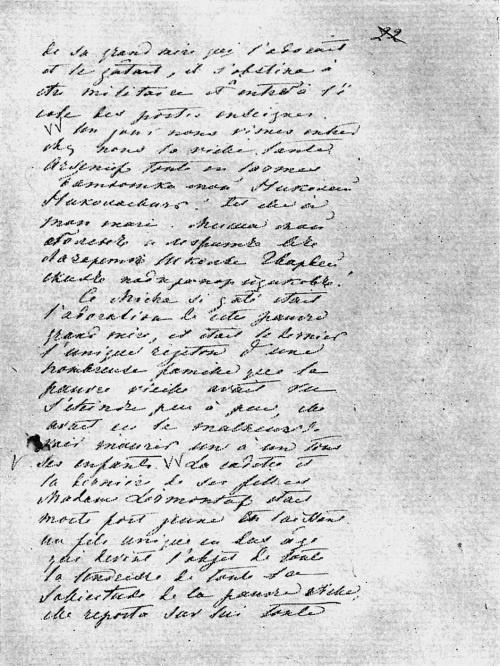 22
de sa grand'mère qui l'adorait
et le gâtait, il s'obstina à
être militaire et entra à l'é
cole des portes enseignes.
Un jour nous vîmes entrer
chez nous la vieille tante
Arsenieff toute en larmes
Батюшка мой Николай
Николаевичь! dit elle à
mon mari. Миша мой
боленъ и лежитъ въ
Лазаретѣ Школы Гвардей
скихъ подпрапорщиковъ!
Ce Micha si gâté était
l'adoration de cette pauvre
grand mère, il était le dernier
l'unique rejeton d'une
nombreuse famille que la
pauvre vieille avait vu
s'éteindre peu à peu, elle
avait eu le malheur de
voir mourir un à un tous
ses enfants. La cadette et
la dernière de ses filles
Madame Lermontoff était
morte fort jeune en laissant
un fils unique en bas âge
qui devint l'objet de toute
la tendresse de toute la
sollicitude de la pauvre vieille,
elle reporta sur lui toute